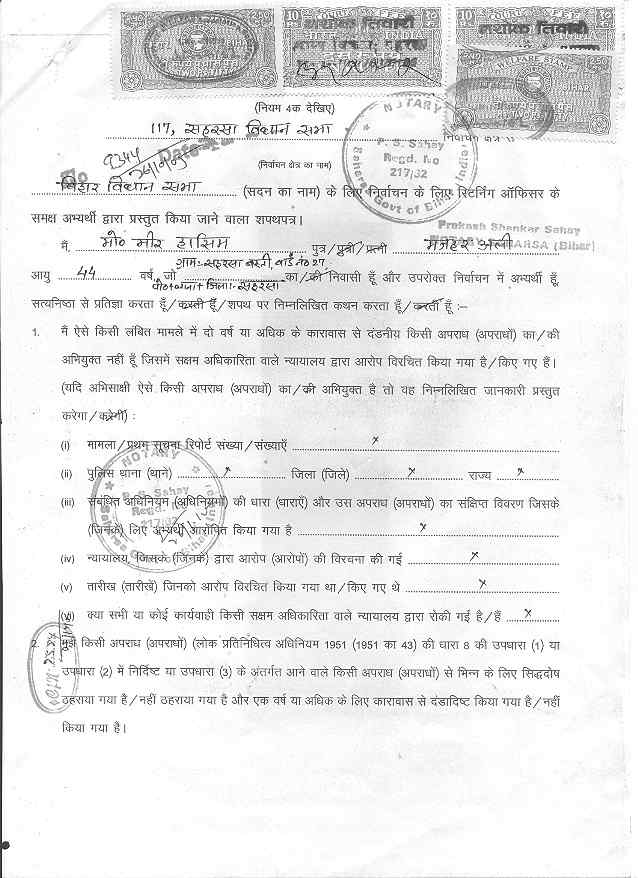 WELFARE STAMP
अशोक तिवारी
INDIA
अशोक तिवारी
WELFARE STAMP
BIHAR
(नियम 4क देखिए)
117, सहरसा विधान सभा निर्वाचन क्षेत्र
NOTARY
P. S. Sahay
Regd. No
217/32
Saharsa Govt of Bihar India
No 9344
(निर्वाचन क्षेत्र का नाम)
बिहार विधान सभा (सदन का नाम) के लिए निर्वाचन के लिए रिटर्निंग ऑफिसर के
समक्ष अभ्यर्थी द्वारा प्रस्तुत किया जाने वाला शपथपत्र।
Prakash Shankar Sahay
NOTARY SAHARSA (Bihar)
मैं, मो० मीर हासिम पुत्र/पुत्री/पत्नी मजहर अली
ग्राम:- सहरसा बस्ती, वार्ड नं० 27,
आयु 44 वर्ष, जो का/की निवासी हूँ और उपरोक्त निर्वाचन में अभ्यर्थी हूँ,
पो०+थाना+जिला:- सहरसा
सत्यनिष्ठा से प्रतिज्ञा करता हूँ/करती हूँ/शपथ पर निम्नलिखित कथन करता हूँ/करती हूँ :–
1. मैं ऐसे किसी लंबित मामले में दो वर्ष या अधिक के कारावास से दंडनीय किसी अपराध (अपराधों) का/की
अभियुक्त नहीं हूँ जिसमें सक्षम अधिकारिता वाले न्यायालय द्वारा आरोप विरचित किया गया है/किए गए हैं।
(यदि अभिसाक्षी ऐसे किसी अपराध (अपराधों) का/की अभियुक्त है तो वह निम्नलिखित जानकारी प्रस्तुत
करेगा/करेगी) :
(i) मामला/प्रथम सूचना रिपोर्ट संख्या/संख्याएँ x
(ii) पुलिस थाना (थाने) x जिला (जिले) x राज्य x
(iii) संबंधित अधिनियम (अधिनियमों) की धारा (धाराएँ) और उस अपराध (अपराधों) का संक्षिप्त विवरण जिसके
(जिनके) लिए अभ्यर्थी आरोपित किया गया है x
NOTARY
P. S. Sahay
Regd. No
217/32
Saharsa Govt of Bihar India
(iv) न्यायालय, जिसके (जिनके) द्वारा आरोप (आरोपों) की विरचना की गई x
(v) तारीख (तारीखें) जिनको आरोप विरचित किया गया था/किए गए थे x
(vi) क्या सभी या कोई कार्यवाही किसी सक्षम अधिकारिता वाले न्यायालय द्वारा रोकी गई है/हैं x
2. मुझे किसी अपराध (अपराधों) (लोक प्रतिनिधित्व अधिनियम 1951 (1951 का 43) की धारा 8 की उपधारा (1) या
उपधारा (2) में निर्दिष्ट या उपधारा (3) के अंतर्गत आने वाले किसी अपराध (अपराधों) से भिन्न के लिए सिद्धदोष
ठहराया गया है/नहीं ठहराया गया है और एक वर्ष या अधिक के लिए कारावास से दंडादिष्ट किया गया है/नहीं
किया गया है।